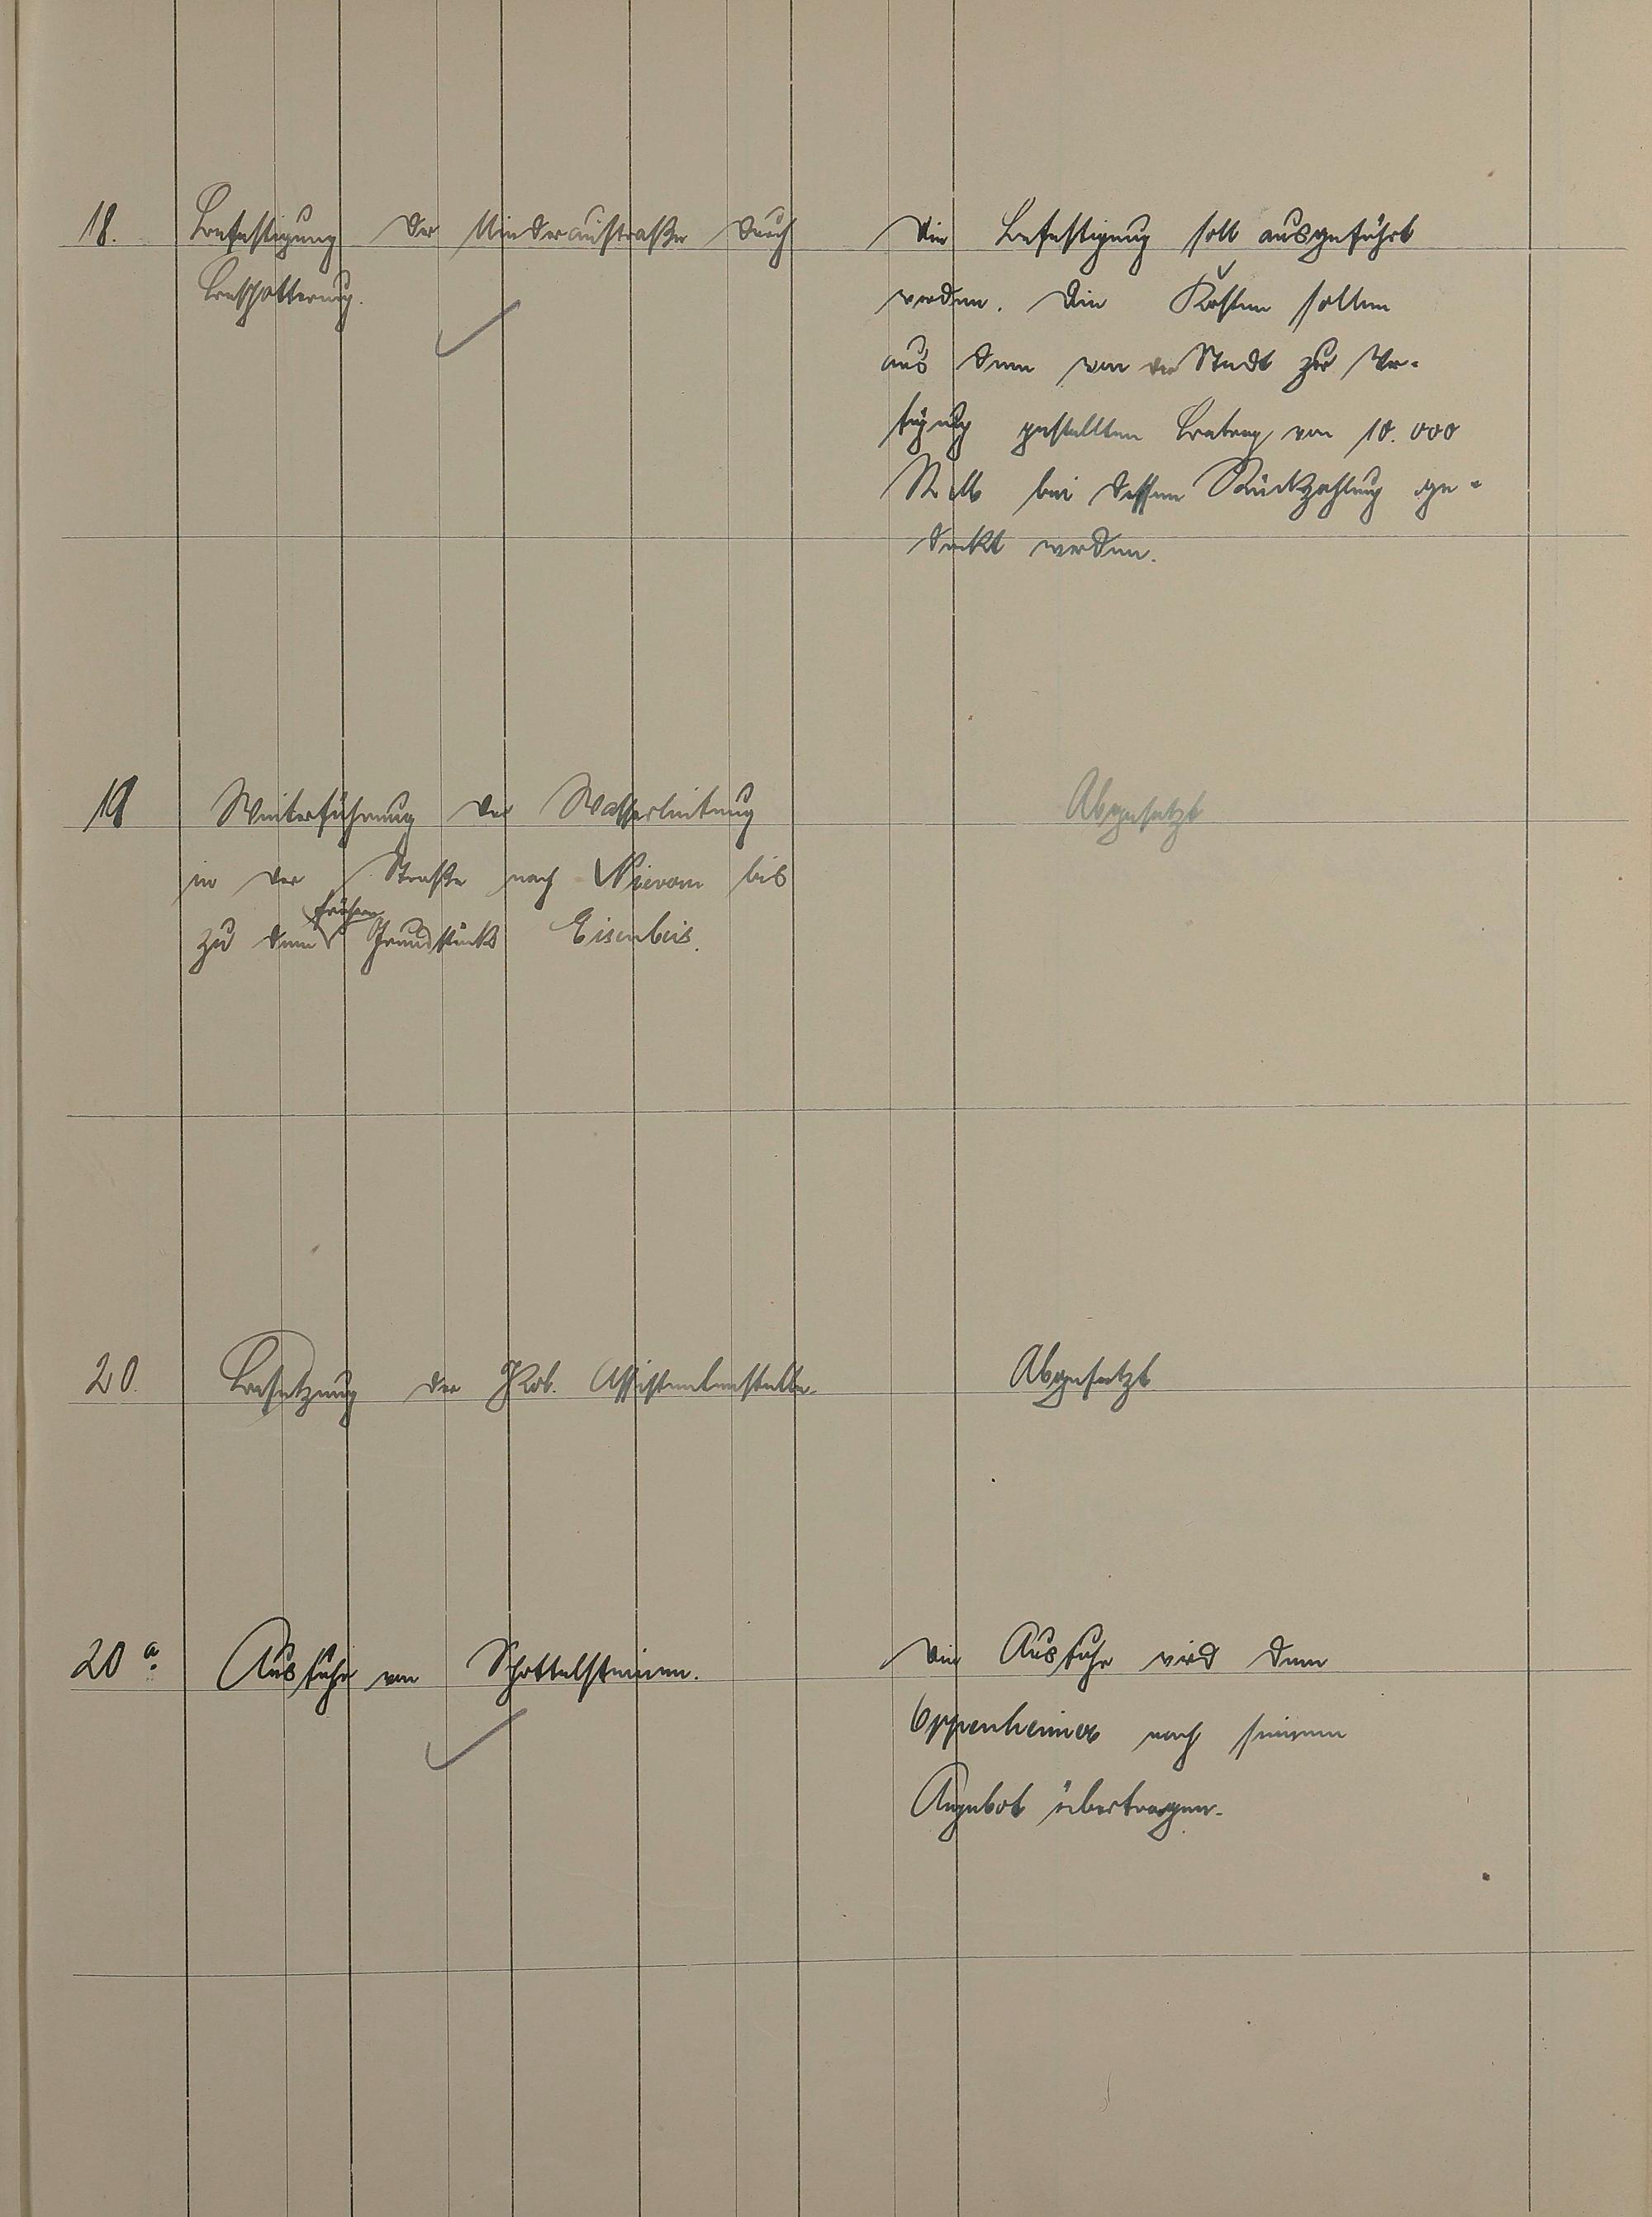 18.
Befestigung der Minderaustraße durch
Beschotterung.
Die Befestigung soll ausgeführt
werden. Die Kosten sollen
aus dem von der Stadt zur Ver-
fügung gestellten Betrag von 10.000
bei dessen Rückzahlung ge-
deckt werden.
19
Weiterführung der Wasserleitung
in der Straße nach Nievern bis
zu dem früheren Grundstück Eisenbeis.
Abgesetzt
20.
Besetzung der Assistentenstelle.
Abgesetzt
20a.
Ausfuhr von Schottelsteinen.
Die Ausfuhr wird dem
Oppenheimer nach seinem
Angebot übertragen.